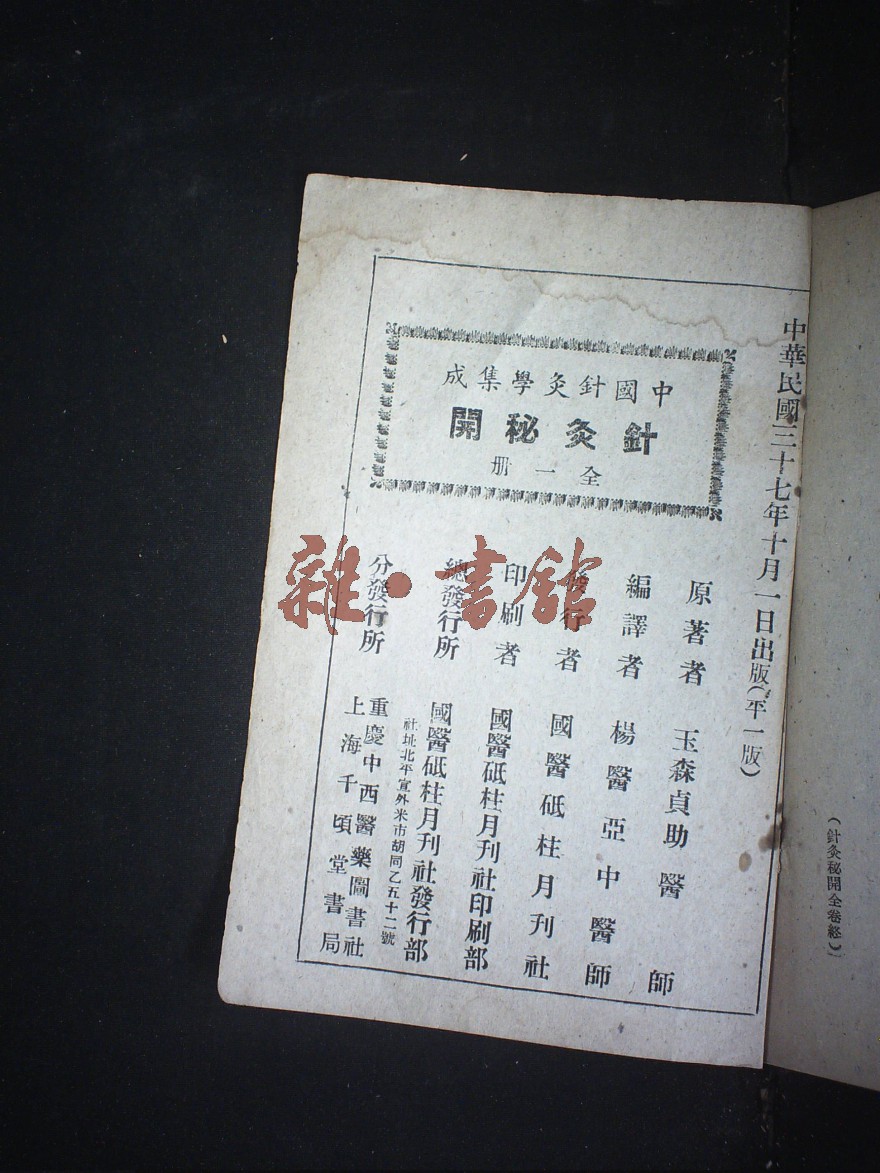 中華民國三十七年十月一日出版(平一版)
中國針灸學集成
針灸秘開
全一册
原著者 玉森貞助醫師
編譯者 楊醫亞中醫師
發行者 國醫砥柱月刊社
印刷者 國醫砥柱月刊社印刷部
總發行所 國醫砥柱月刊社發行部
社址北平宣外米市胡同乙五十二號
分發行所 重慶中西醫藥圖書社
上海千頃堂書局
(針灸秘開全卷終)
雜·書館